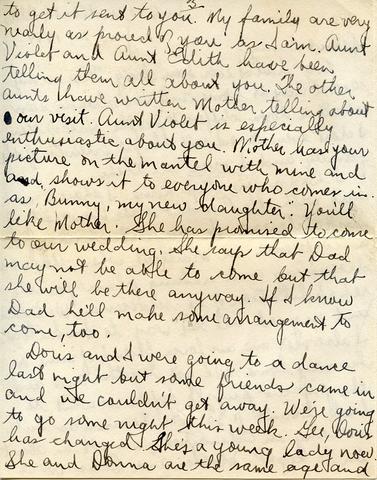 3
to get it sent to you. My family are very
nearly as proud of you as I am. Aunt
Violet and Aunt Edith have been
telling them all about you. The other
aunts have written Mother telling about
our visit. Aunt Violet is especially
enthusiastic about you. Mother has your
picture on the mantel with mine and
and, shows it to everyone who comes in
as, "Bunny, my new daughter." You'll
like Mother. She has promised to come
to our wedding. She says that Dad
may not be able to come but that
she will be there anyway. If I know
Dad he'll make some arrangement to
come, too.
Doris and I were going to a dance
last night but some friends came in
and we couldn't get away. We're going
to go some night this week. Gee, Doris
has changed. She's a young lady now.
She and Donna are the same age and